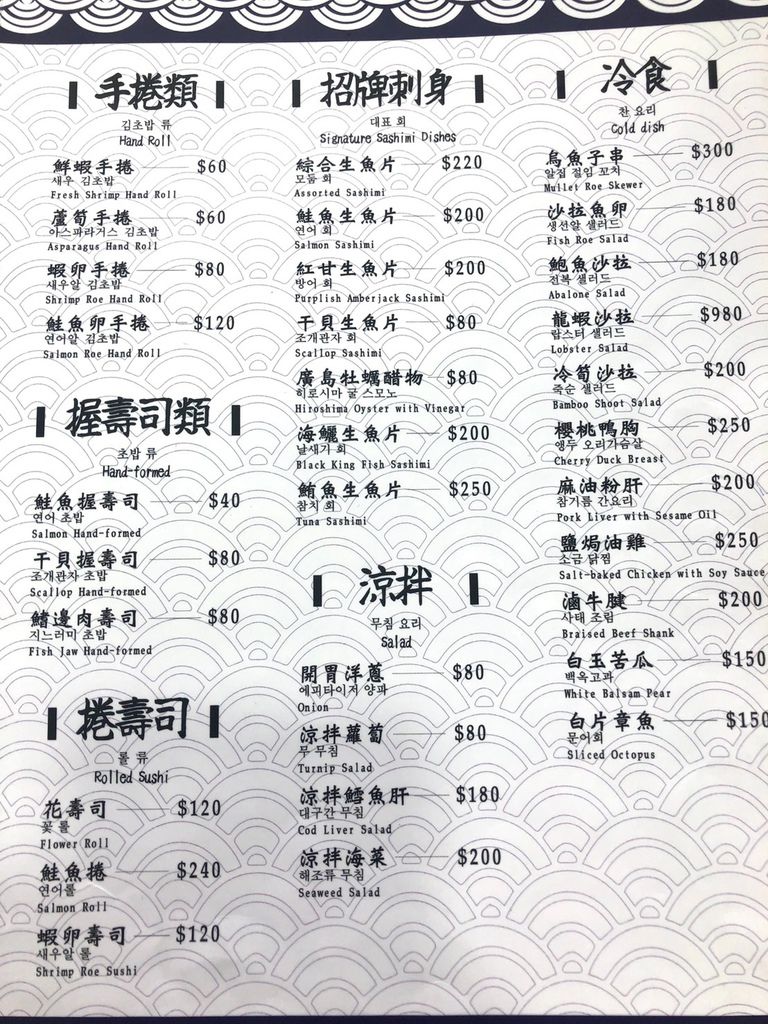 手捲類
김초밥 류
Hand Roll
鮮蝦手捲 $60
새우 김초밥
Fresh Shrimp Hand Roll
蘆筍手捲 $60
아스파라거스 김초밥
Asparagus Hand Roll
蝦卵手捲 $80
새우알 김초밥
Shrimp Roe Hand Roll
鮭魚卵手捲 $120
연어알 김초밥
Salmon Roe Hand Roll
握壽司類
초밥 류
Hand-formed
鮭魚握壽司 $40
연어 초밥
Salmon Hand-formed
干貝握壽司 $80
조개관자 초밥
Scallop Hand-formed
鰭邊肉壽司 $80
지느러미 초밥
Fish Jaw Hand-formed
捲壽司
롤 류
Rolled Sushi
花壽司 $120
꽃 롤
Flower Roll
鮭魚捲 $240
연어롤
Salmon Roll
蝦卵壽司 $120
새우알 롤
Shrimp Roe Sushi
招牌刺身
대표 회
Signature Sashimi Dishes
綜合生魚片 $220
모둠 회
Assorted Sashimi
鮭魚生魚片 $200
연어 회
Salmon Sashimi
紅甘生魚片 $200
방어 회
Purplish Amberjack Sashimi
干貝生魚片 $80
조개관자 회
Scallop Sashimi
廣島牡蠣醋物 $80
히로시마 굴 스모노
Hiroshima Oyster with Vinegar
海鱺生魚片 $200
날새기 회
Black King Fish Sashimi
鮪魚生魚片 $250
참치 회
Tuna Sashimi
涼拌
무침 요리
Salad
開胃洋蔥 $80
에피타이저 양파
Onion
涼拌蘿蔔 $80
무 무침
Turnip Salad
涼拌鱈魚肝 $180
대구간 무침
Cod Liver Salad
涼拌海菜 $200
해조류 무침
Seaweed Salad
冷食
찬 요리
Cold dish
烏魚子串 $300
알집 절임 꼬치
Mullet Roe Skewer
沙拉魚卵 $180
생선알 샐러드
Fish Roe Salad
鮑魚沙拉 $180
전복 샐러드
Abalone Salad
龍蝦沙拉 $980
랍스터 샐러드
Lobster Salad
冷筍沙拉 $200
죽순 샐러드
Bamboo Shoot Salad
櫻桃鴨胸 $250
앵두 오리가슴살
Cherry Duck Breast
麻油粉肝 $200
참기름 간요리
Pork Liver with Sesame Oil
鹽焗油雞 $250
소금 닭찜
Salt-baked Chicken with Soy Sauce
滷牛腱 $200
사태 조림
Braised Beef Shank
白玉苦瓜 $150
백옥고과
White Balsam Pear
白片章魚 $150
문어회
Sliced Octopus